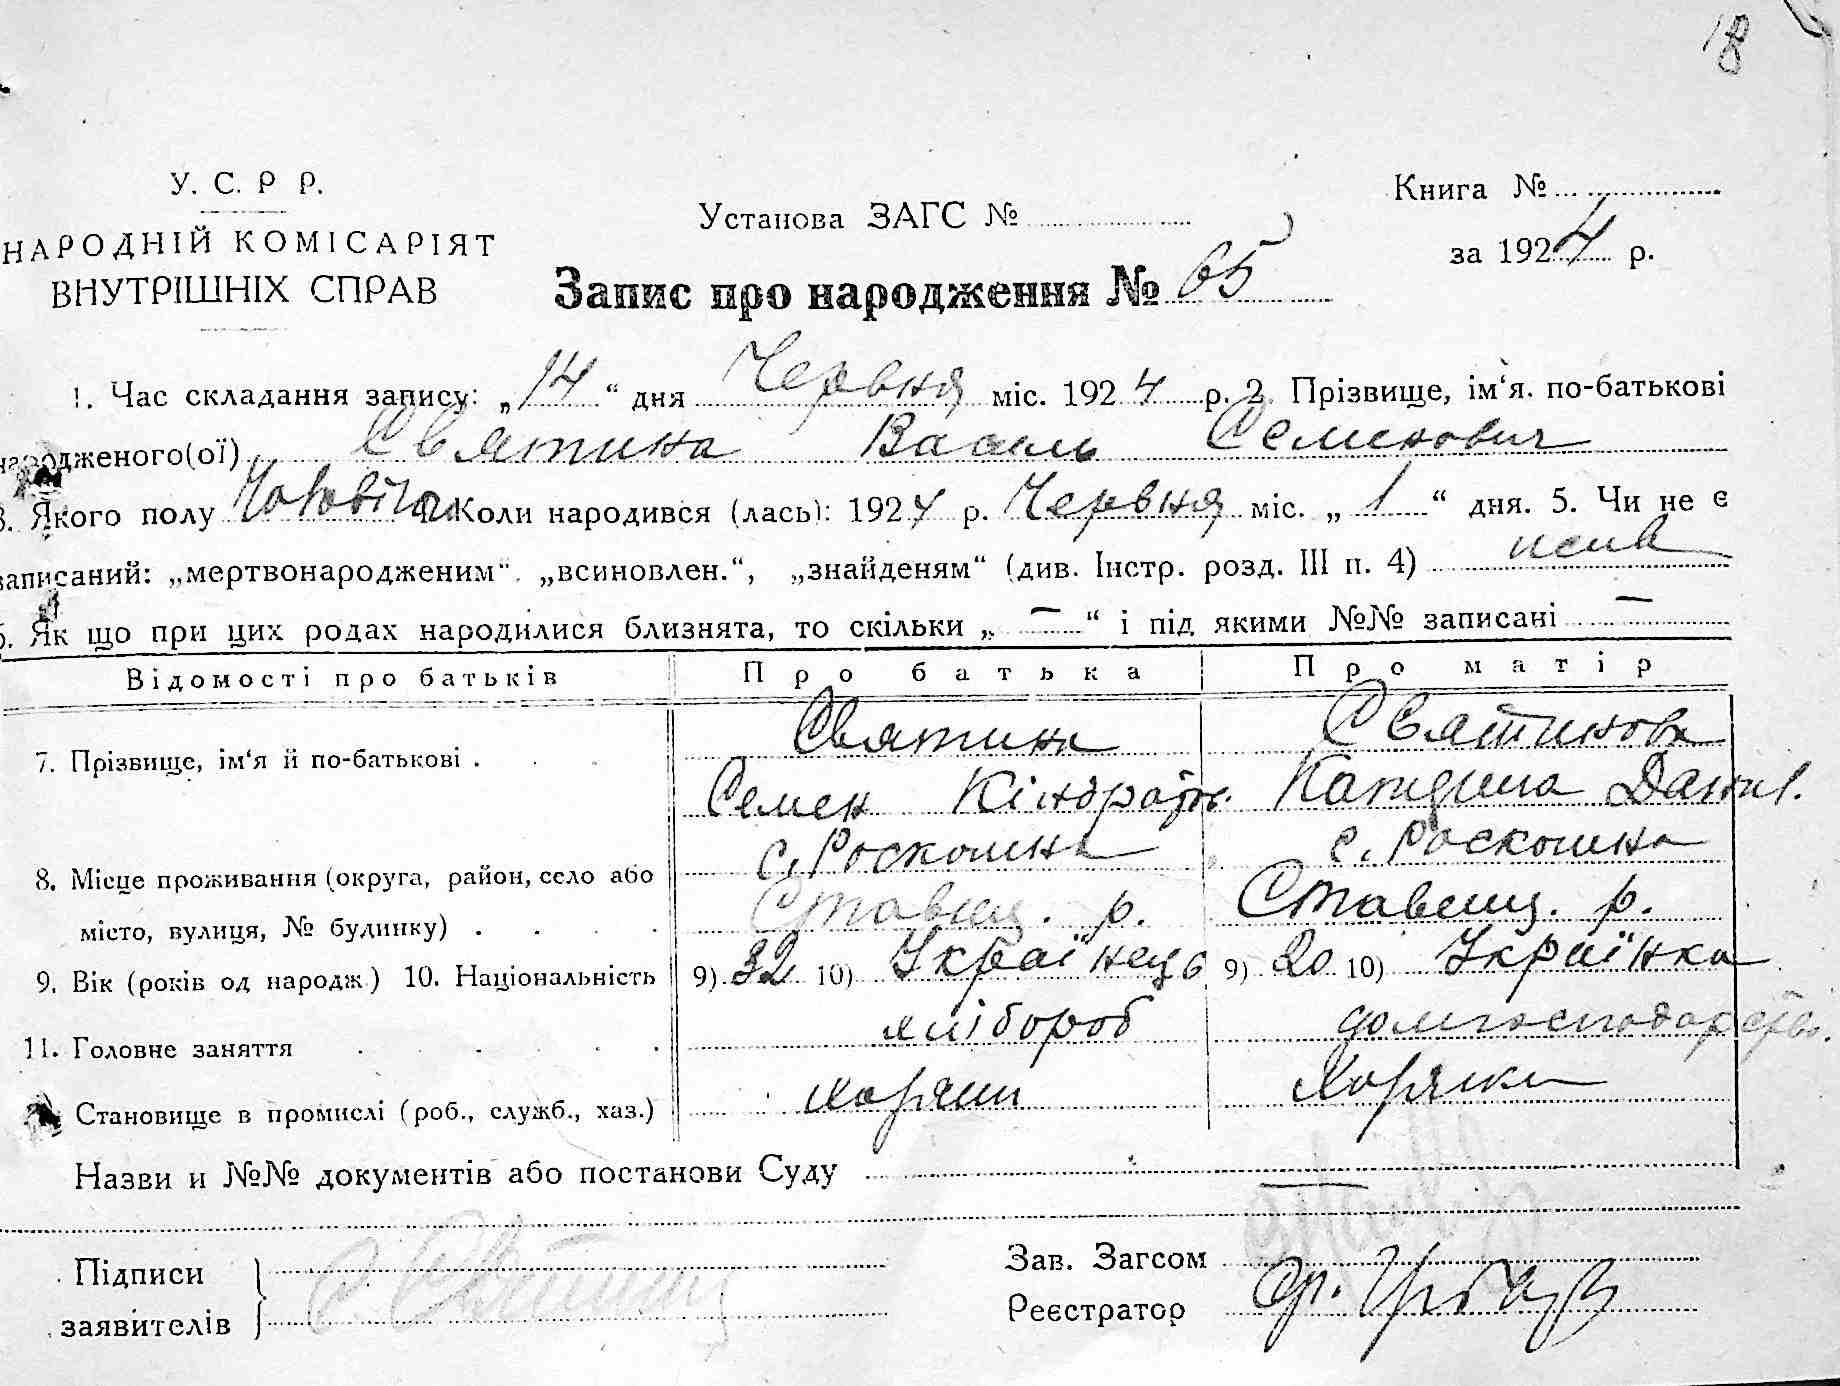 18
У. С. Р Р.
НАРОДНІЙ КОМІСАРІЯТ
ВНУТРІШНІХ СПРАВ
Установа ЗАГС №
Книга №
за 1924 р.
Запис про народження № 65
1. Час складання запису: „14“ дня Червня міс. 1924 р. 2. Прізвище, ім‘я. по-батькові
народженого(ої) Святина Василь Семенович
3. Якого полу Чоловіча Коли народився (лась): 1924 р. Червня міс. „1“ дня. 5. Чи не є
записаний: „мертвонародженим“. „всиновлен.“, „знайденям“ (див. Інстр. розд. III п. 4)
6. Як що при цих родах народилися близнята, то скільки „ — “ і під якими №№ записані —
Відомості про батьків Про батька Про матір
7. Прізвище, ім‘я й по-батькові . Святина Святинова
Семен Кіндратов. Катерина Данил.
с. Роскошна с. Роскошна
8. Місце проживання (округа, район, село або
місто, вулиця, № будинку) . Ставищ. р. Ставищ. р.
9. Вік (років од народж.) 10. Національність 9) 32 10) Українець 9) 20 10) Українка
11. Головне заняття хлібороб домгосподарство.
Становище в промислі (роб., служб., хаз.)
Назви и №№ документів або постанови Суду —
Підписи
заявителів
С. Святина
Зав. Загсом
Реєстратор